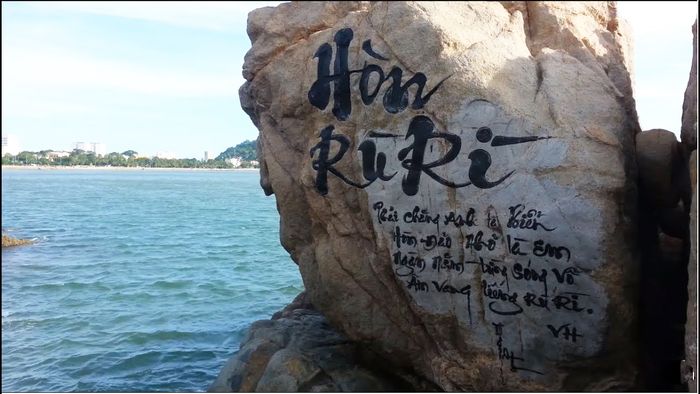 Hòn
Rù Rì
Phải chăng Anh là Biển
Hòn-Đảo Nhỏ là Em
Ngàn Năm-từng Sóng Vỗ
Âm vang tiếng Rù Rì.
VH